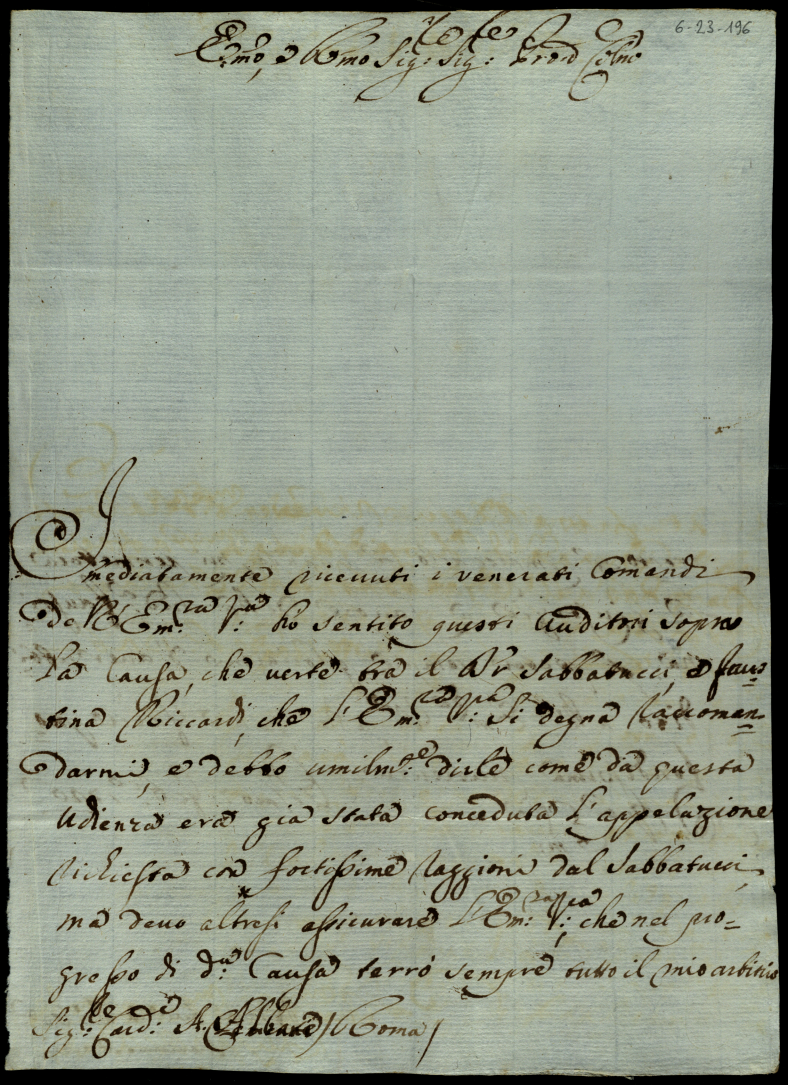 6-23-196
E:mo, e Rmo Sig:re Sig:re Prod Colmo
Imediatamente riceuuti i venerati Comandi
del'E:m:za V:ra hò sentito questi Auditori sopra
la Causa, che verte trà il Dr Sabbatucci, e Faus=
tina Riccardi, che l'E:m:za V:ra Si degna raccoman=
darmi, e debbo umilm:te dirle come da questa
Udienza era gia stata conceduta l'appellazione
richiesta con fortissime raggioni dal Sabbatucci,
ma deuo altresi assicurare l'E:m:za V:ra, che nel pro=
gresso di d:a Causa terrò sempre tutto il mio arbitrio
Sig:re Card:le A. Albani / Roma /